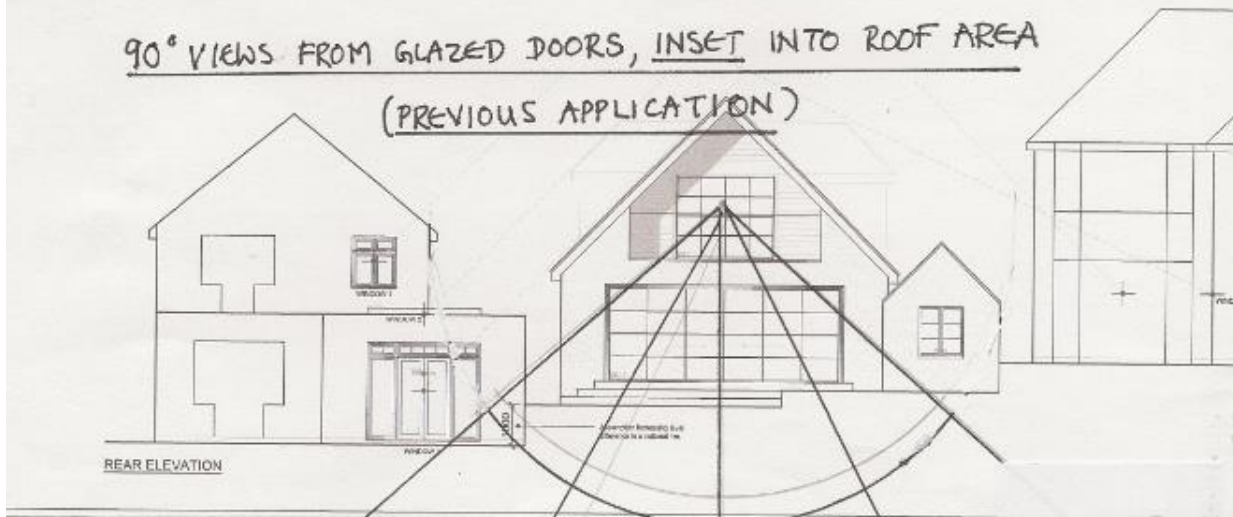 90° VIEWS FROM GLAZED DOORS, INSET INTO ROOF AREA
(PREVIOUS APPLICATION)
WINDOW
WINDOW
WINDOW
REAR ELEVATION